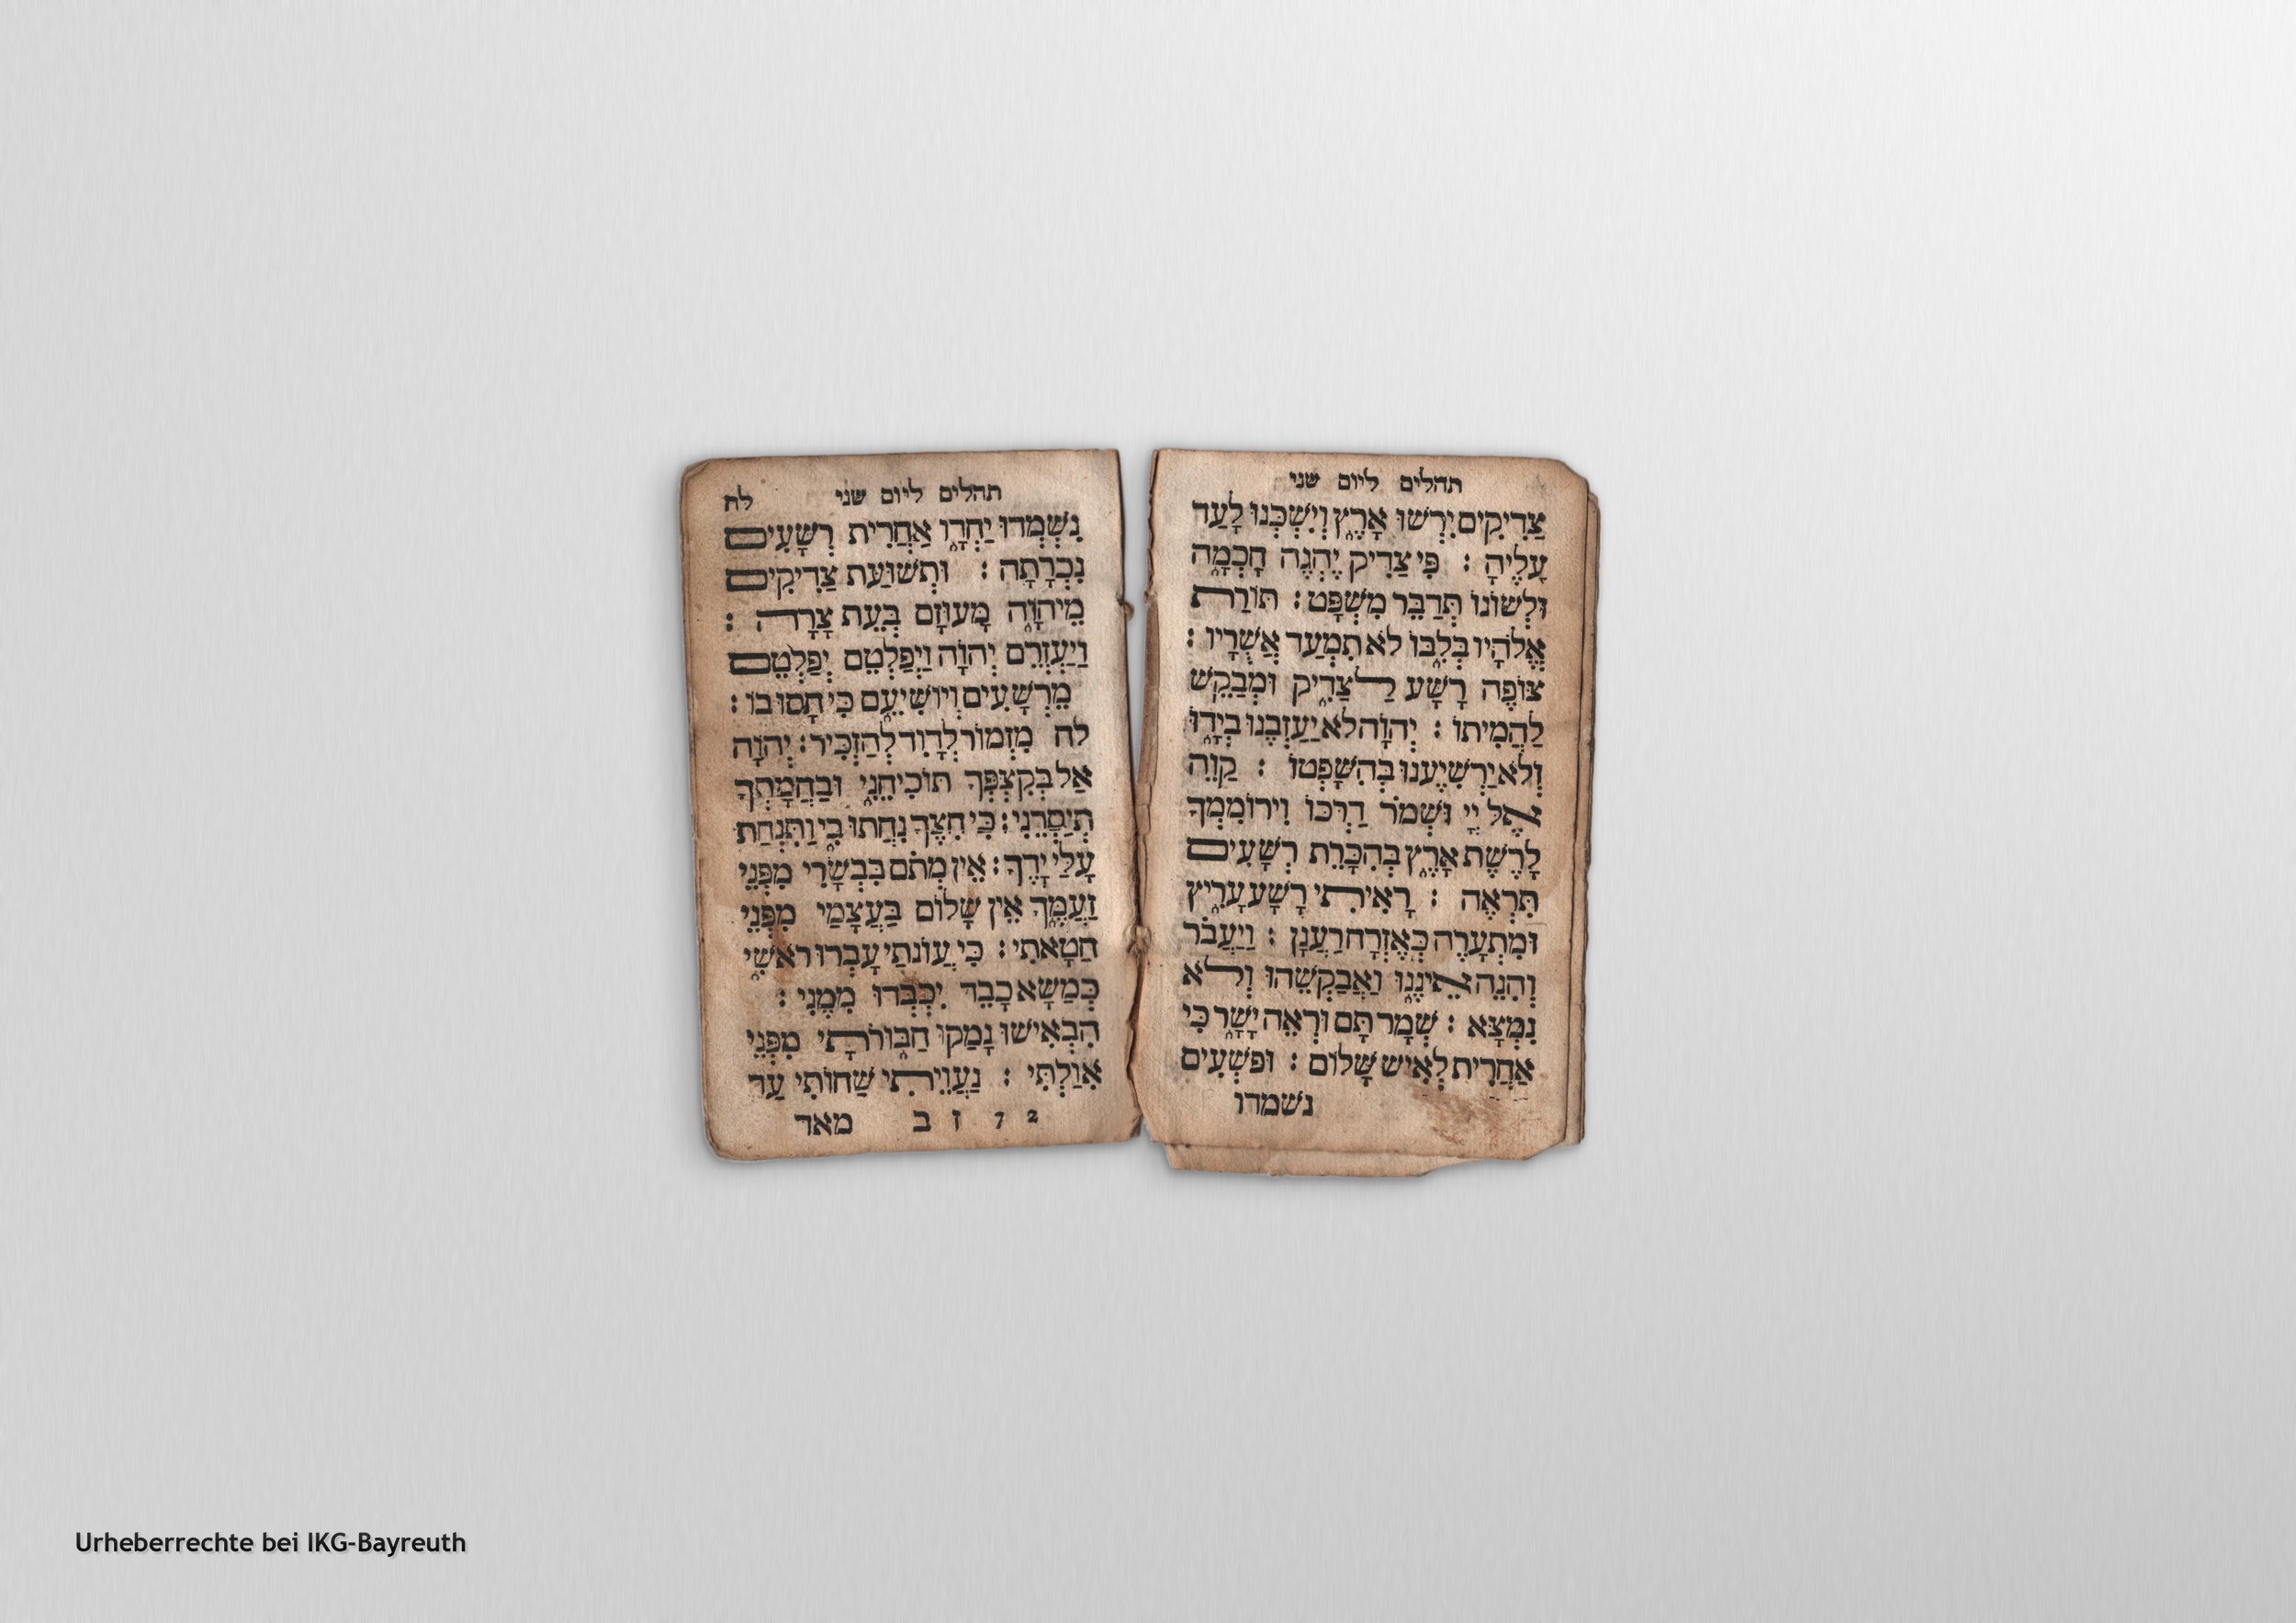 תהלים ליום שני
צַדִיקִים יִרְשׁוּ אָרֶץ וְיִשְׁכְּנוּ לָעַד
עָלֶיהָ : פִּי צַדִיק יֶהְגֶה חָכְמָה
וּלְשׁוֹנוֹ תְּדַבֵּר מִשְׁפָּט : תּוֹרַת
אֱלֹהָיו בְּלִבּוֹ לֹא תִמְעַד אֲשֻׁרָיו :
צוֹפֶה רָשָׁע לַצַדִיק וּמְבַקֵשׁ
לַהֲמִיתוֹ : יְהוָֹה לֹא יַעַזְבֶנוּ בְיָדוֹ
וְלֹא יַרְשִׁיעֶנוּ בְּהִשָׁפְטוֹ : קַוֵּה
אֶל יְיָ וּשְׁמֹר דַרְכּוֹ וִירוֹמִמְךָ
לָרֶשֶׁת אָרֶץ בְּהִכָּרֵת רְשָׁעִים
תִּרְאֶה : רָאִיתִי רָשָׁע עָרִיץ
וּמִתְעָרֶה כְּאֶזְרָח רַעֲנָן : וַיַעֲבֹר
וְהִנֵה אֵינֶנוּ וַאֲבַקְשֵׁהוּ וְלֹא
נִמְצָא : שְׁמָר תָּם וּרְאֵה יָשָׁר כִּי
אַחֲרִית לְאִישׁ שָׁלוֹם : וּפשְׁעִים
נשמדו
תהלים ליום שני לח
נִשְׁמְדוּ יַחְדָו אַחֲרִית רְשָׁעִים
נִכְרָתָה : וּתְשׁוּעַת צַדִיקִים
מֵיהוָֹה מָעוּזָם בְּעֵת צָרָה :
וַיַעְזְרֵם יְהוָֹה וַיְפַלְטֵם יְפַלְטֵם
מֵרְשָׁעִים וְיוֹשִׁיעֵם כִּי חָסוּ בוֹ :
לח מִזְמוֹר לְדָוִד לְהַזְכִּיר : יְהוָֹה
אַל בְּקִצְפְּךָ תוֹכִיחֵנִי וּבַחֲמָתְךָ
תְיַסְרֵנִי : כִּי חִצֶיךָ נִחֲתוּ בִי וַתִּנְחַת
עָלַי יָדֶךָ : אֵין מְתֹם בִּבְשָׂרִי מִפְּנֵי
זַעֲמֶךָ אֵין שָׁלוֹם בַּעֲצָמַי מִפְּנֵי
חַטָאתִי : כִּי עֲוֹנֹתַי עָבְרוּ רֹאשִׁי
כְּמַשָׂא כָבֵד יִכְבְּדוּ מִמֶנִי :
הִבְאִישׁוּ נָמַקוּ חַבּוּרֹתָי מִפְּנֵי
אִוַלְתִּי : נַעֲוֵיתִי שַׁחוֹתִי עַד
2 7 ז ב מאד
Urheberrechte bei IKG-Bayreuth